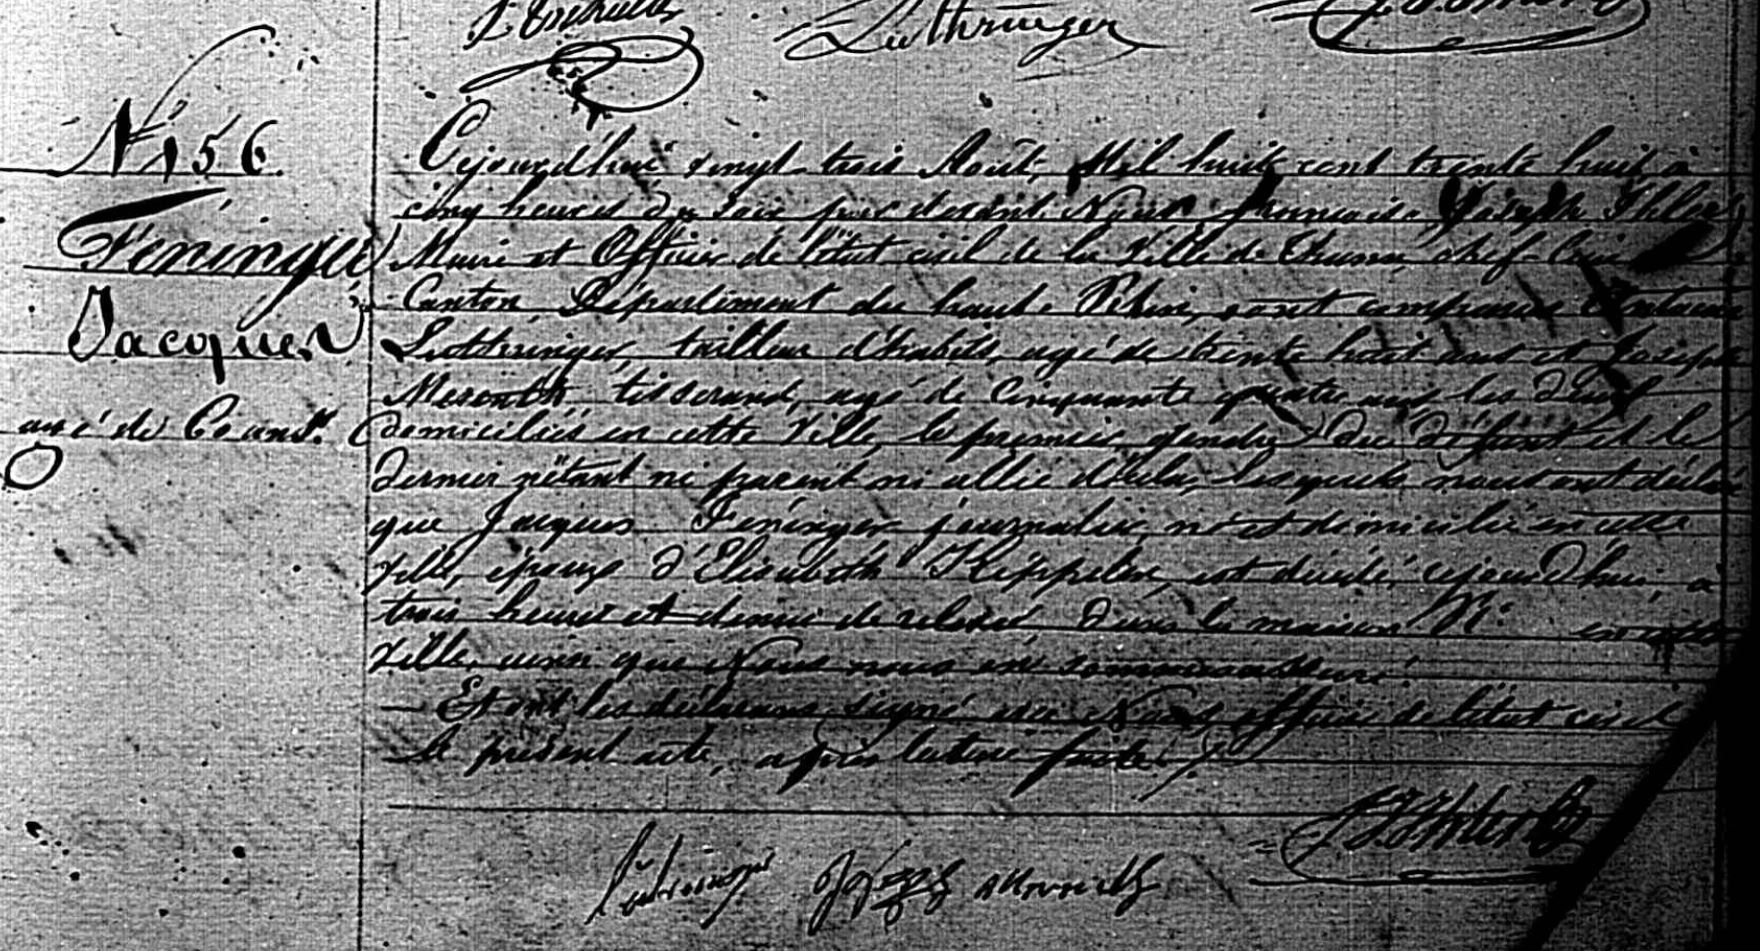 Luthringer
N 156
Feninger
Jacques
agé de 60 ans.
Cejourd'hui vingt-trois Août, Mil huit cent trente huit, à
cinq heures du soir par devant Nous François Joseph
Maire et Officier de l'état civil de la Ville de Thann, chef-lieu
Canton, Département du haut-Rhin, sont comparus
Luthringer, tailleur d'habits, agé de trente huit ans et Joseph
tisserand, agé de Cinquante quatre ans les deux
domiciliés en cette Ville, le premier gendre du défunt et le
dernier n'étant ni parent ni allié d'icelui, lesquels nous ont déclaré
que Jacques Feninger journalier, né et domicilié en cette
Ville, époux d'Elisabeth Kippelen, est décédé, cejourd'hui, à
trois heures et demie de relevé dans la maison N° en cette
Ville, ainsi que Nous nous en sommes assuré.
— Et ont les déclarans signé avec Nous officier de l'état civil
le présent acte, après lecture faite.
Joseph